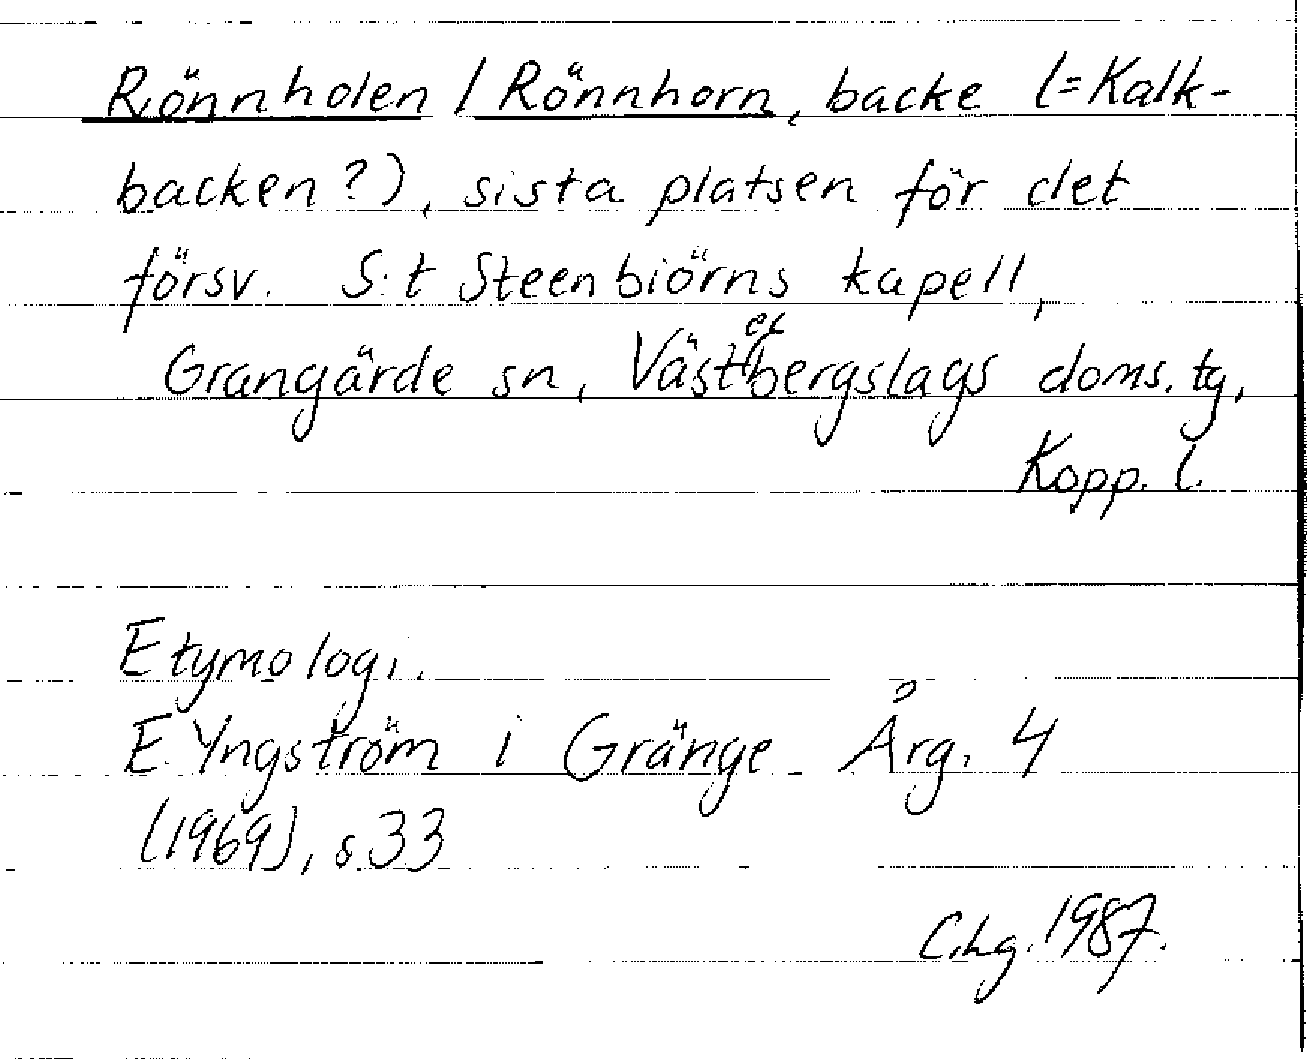 Rönnholen / Rönnhorn, backe (=Kalk-
backen?), sista platsen för det
försv. S:t Steenbiörns kapell,
Grangärde sn, Västerbergslags doms. tg,
Kopp. l.
Etymologi.
E. Yngström i Gränge Årg. 4
(1969), s. 33
C.Lg. 1987.